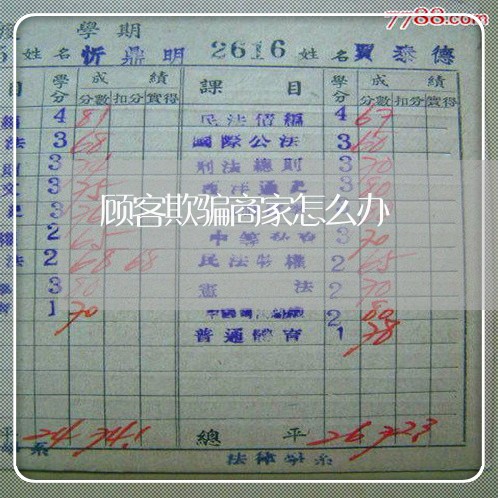 7788.com
學期
姓名 忻鼎明 2616 姓名 賈泰德
目 學分 成績 課目 學分 成績
分數 扣分 實得 分數 扣分 實得
4 81 民法債編 4 67
法 3 68 國際公法 3 60
3 刑法總則 3 70
3 75 3
顾客欺骗商家怎么办
2 65 3 70
法 2 68 68 民法物權 2 65
3 憲法 2 70
1 70 2 80
普通體育 1 78
平 24 74.1 總平 26 72.3
系 法律學系